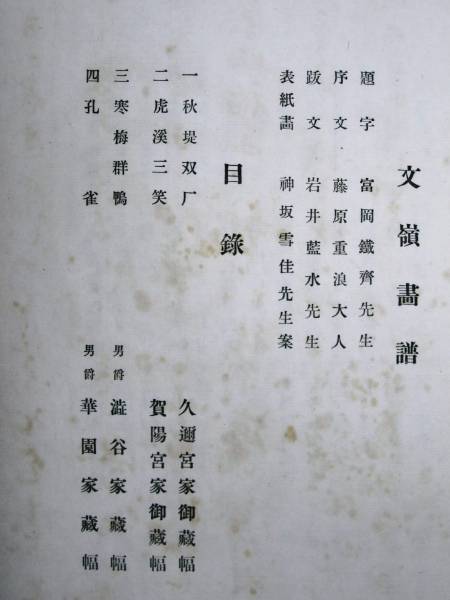 文嶺畫譜
題字　富岡鐵齊先生
序文　藤原重浪大人
跋文　岩井藍水先生
表紙畵　神坂雪佳先生案
目錄
一　秋堤双厂　久邇宮家御藏幅
二　虎溪三笑　賀陽宮家御藏幅
三　寒梅群鴨　男爵　澁谷家藏幅
四　孔雀　男爵　華園家藏幅